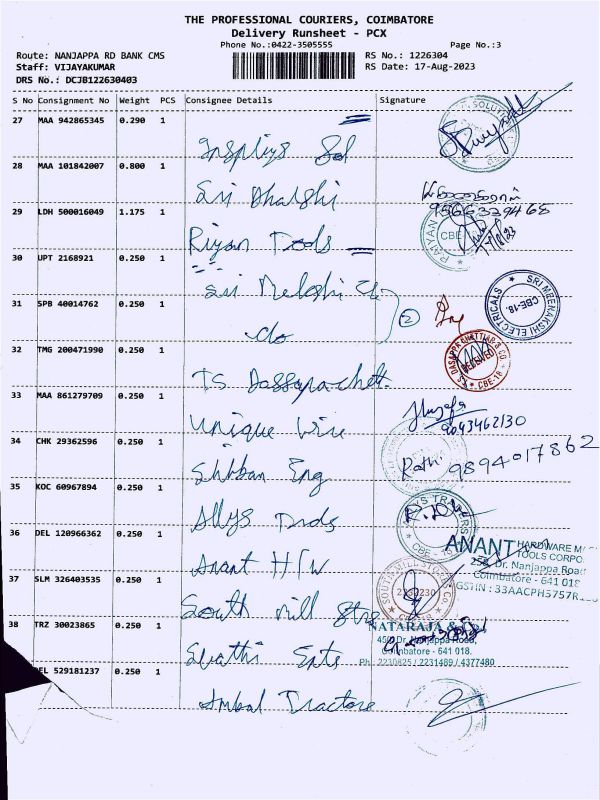 THE PROFESSIONAL COURIERS, COIMBATORE
Delivery Runsheet - PCX
Phone No.:0422-3505555
Page No.:3
Route: NANJAPPA RD BANK CMS
RS No.: 1226304
Staff: VIJAYAKUMAR
RS Date: 17-Aug-2023
DRS No.: DCJB122630403
S No Consignment No Weight PCS Consignee Details Signature
27 MAA 942865345 0.290 1
28 MAA 101842007 0.800 1
Sri Dharshi
9566339468
29 LDH 500016049 1.175 1
Riyan Tools
17/8/23
CBE
30 UPT 2168921 0.250 1
Sri
SRI MEENAKSHI ELECTRICALS
CBE-18.
31 SPB 40014762 0.250 1
do
2
32 TMG 200471990 0.250 1
TS Dassapachett
T.S. DASAPPA CHETTIAR & CO.
RECEIVED
CBE-18
33 MAA 861279709 0.250 1
Unique Wire
9043462130
34 CHK 29362596 0.250 1
Shiban Eng
Rathi 9894017862
35 KOC 60967894 0.250 1
Allys Trads
CBE-18
36 DEL 120966362 0.250 1
Anant H/W
ANANT HARDWARE
TOOLS CORPO
Dr. Nanjappa Road
Coimbatore - 641 018
GSTIN : 33AACPH5757R
37 SLM 326403535 0.250 1
South Mill Strs
SOUTH MILL STORES CO.
2230230
38 TRZ 30023865 0.250 1
Swathi Ents
NATARAJA & Co.
Dr. Nanjappa Road
Coimbatore - 641 018.
Ph : 2230825 / 2231489 / 4377480
EL 529181237 0.250 1
Ambal Tractors